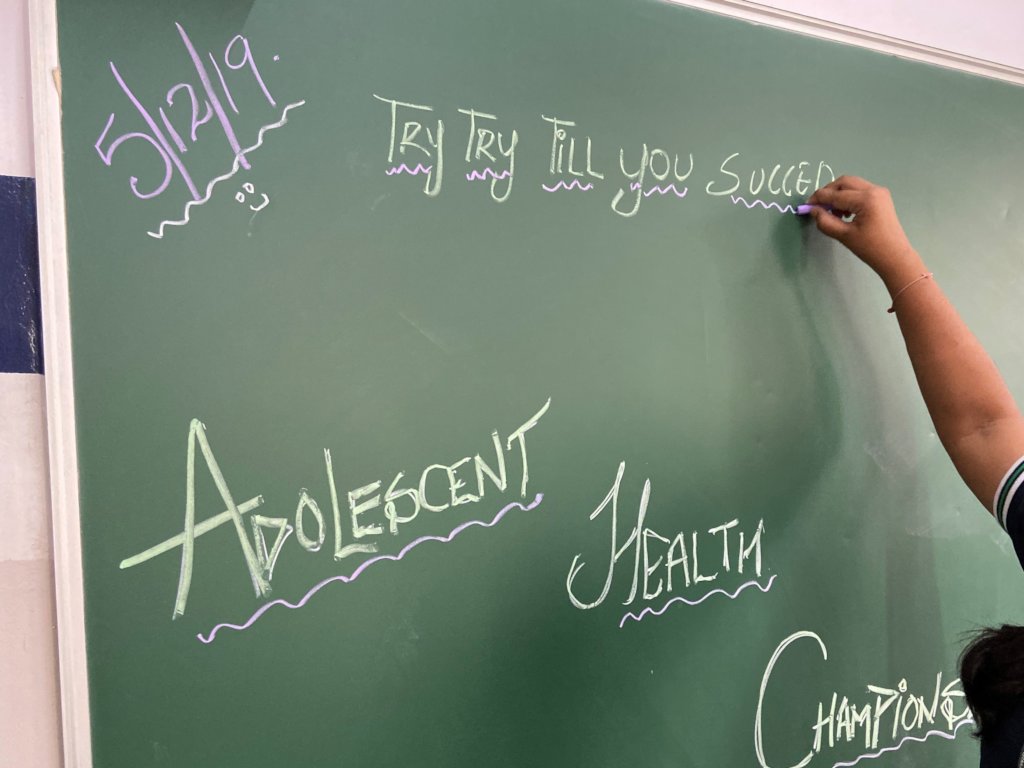 5/12/19.
TRY TRY TILL YOU SUCCED
ADOLESCENT
HEALTH
CHAMPIONS